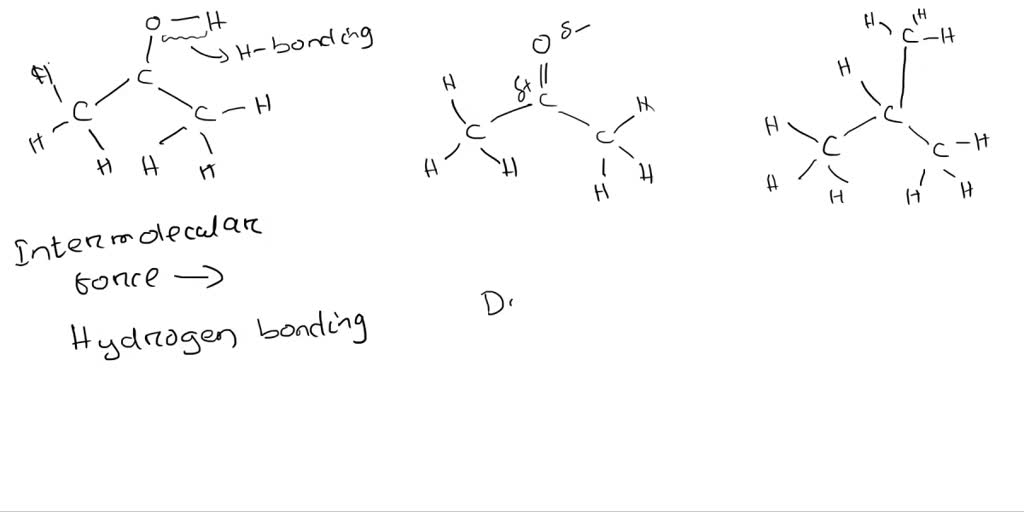 O—H
H-bonding
C
H
C
C—H
H
H
H
H
O δ-
δ+
C
H
H
C
C
H
H
H
H
H
H
C—H
H
C
H
C
C—H
H
H
H
H
Intermolecular
force →
Hydrogen bonding
D